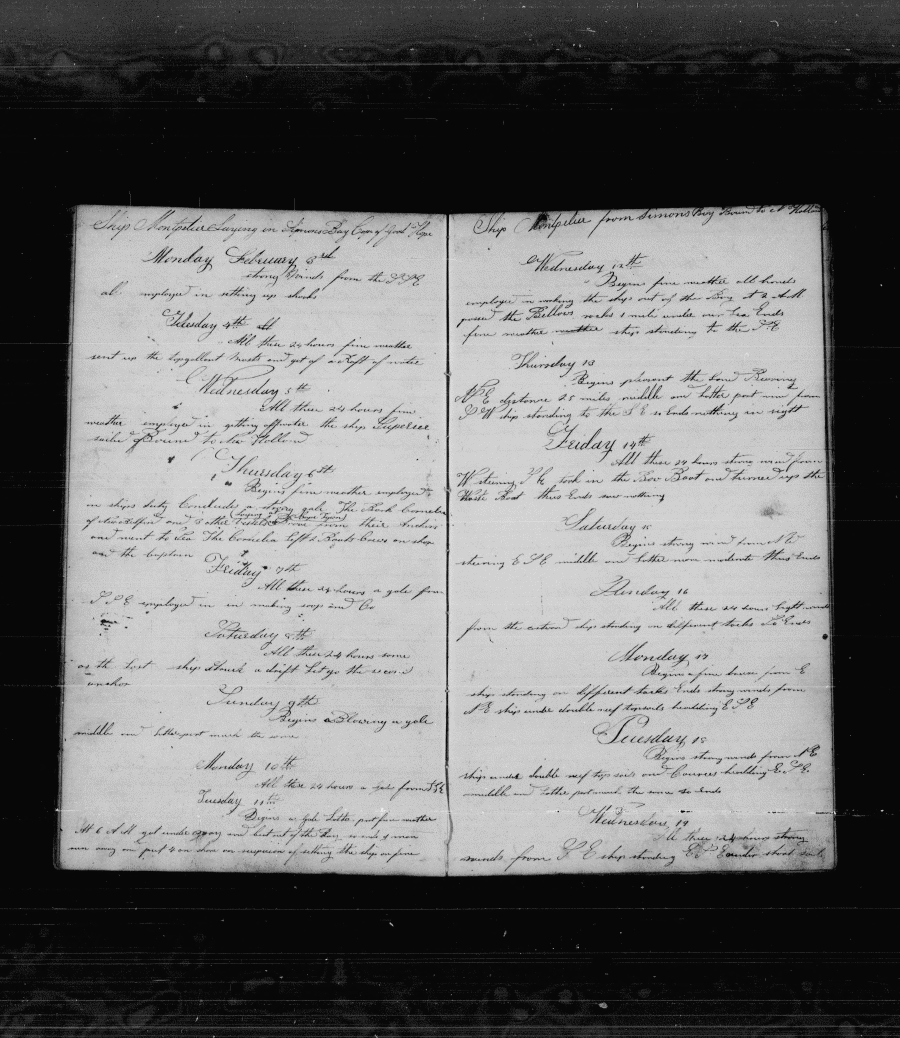 Ship Montpelier Laying in Simons Bay Cape of Good Hope
Monday February 3rd
strong Winds from the S S E
all employed in setting up shrouds
Tuesday 4th
All these 24 hours fine weather
sent up the topgallent masts and got of a Raft of water
Wednesday 5th
All these 24 hours fine
weather employed in geting off water the ship Superior
sailed Bound to New Holland
Thursday 6th
Begins fine weather employed
in ships duty Concluds a strong gale The Bark Cornelia
of New Bedford and 3 other vessels from their Anchors
and went to Sea The Cornelia left 2 Boats Crews on shore
and the Captain
Friday 7th
All these 24 hours a gale from
S S E employed in in making and Co
Saturday 8th
All these 24 hours same
as the last ship struck a drift Let go the second
anchor
Sunday 9th
Begins a Blowing a gale
middle and latter part much the same
Monday 10th
All these 24 hours a gale from S E
Tuesday 11th
Begins a gale Latter part fine weather
At 6 A M got under and beat out of the Bay so ends 1 man
ran away and put 4 on shore on suspicion of setting the ship on fire
Ship Montpelier from Simons Bay Bound to N Holland
Wednesday 12th
Begins fine weather all hands
employed in working the ship out of the Bay at 2 A M
passed the Bellows rocks 1 mile under our Lea Ends
fine weather ship standing to the S E
Thursday 13
Begins pleasent the Land Bearing
N E distance 25 miles middle and latter part wind from
S W ship standing to the S E so Ends nothing in sight
Friday 14th
All these 24 hours strong wind from
W steering S E took in the Bow Boat and turned up the
Waste Boat thus Ends saw nothing
Saturday 15
Begins strong wind from N W
steering E S E middle and latter more moderate thus Ends
Sunday 16
All these 24 hours light winds
from the eastward ship standing on different tacks So Ends
Monday 17
Begins a fine breeze from E
ship standing on different tacks Ends strong winds from
N E ship under double reef topsails heading E S E
Tuesday 18
Begins strong winds from N E
ship under double reef top sails and Courses heading E S E
middle and latter part much the same so Ends
Wednesday 19
All these 24 hours strong
winds from S E ship standing E S E under short sail